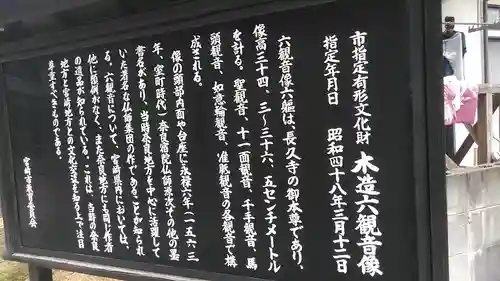 市指定有形文化財 木造六観音像
指定年月日 昭和四十八年三月十二日
六観音像六躯は、長久寺の御本尊であり、
像高三十四、三~三十六、五センチメートル
を計る。聖観音、十一面観音、千手観音、馬
頭観音、如意輪観音、准胝観音の各観音で構
成される。
像の頭部内面や台座に永禄六年(一五六三
年、室町時代)奈良宿院仏師源次等の他の墨
書名があり、当時奈良地方を中心に活躍して
いた著名な仏師集団の作であることが知られ
る。六観音について、宮崎県内においては、
他に類例がなく、また奈良地方にも同じ作者
の遺品が知られている。これは、当時の奈良
地方と宮崎地方との文化交流を知る上で注目
尊重すべきものである。
宮崎市教育委員会